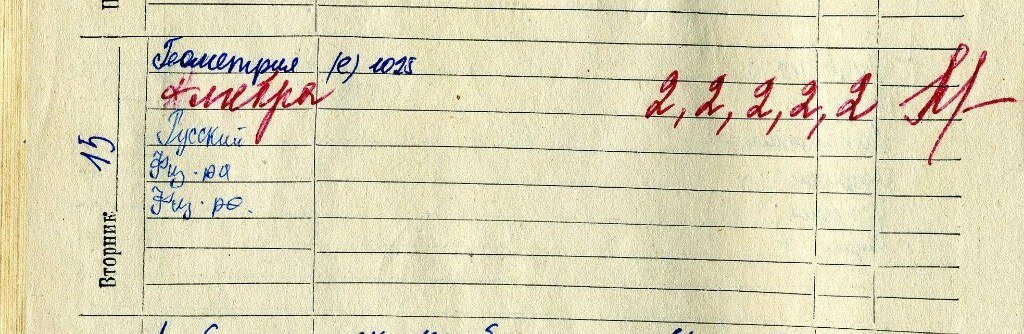 Вторник
15
Геометрия (е) 1025
Алгебра 2, 2, 2, 2, 2
Русский
Физ-ра
Физ-ра